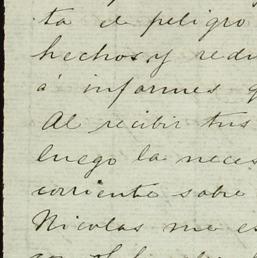 ta el peligro
hechos, y redu
á informes q
Al recibir tus
luego la neces
corriente sobre
Nicolas me es